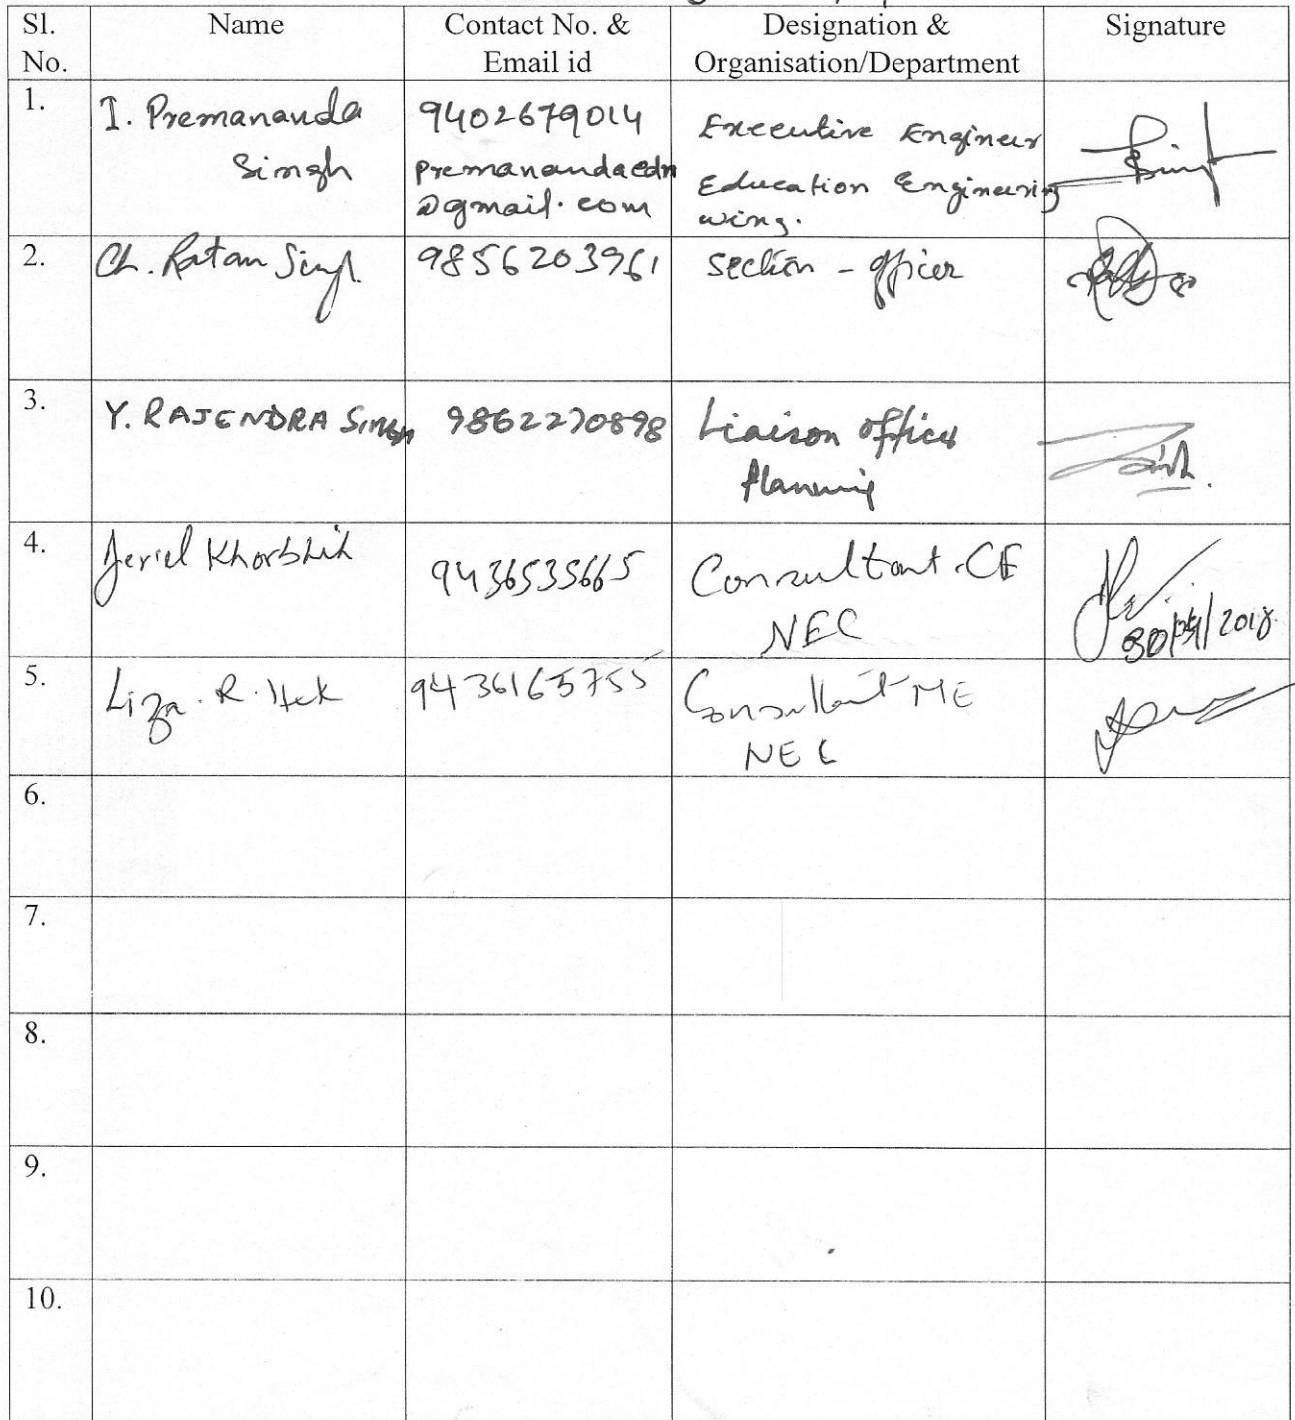 Sl. No. Name Contact No. & Email id Designation & Organisation/Department Signature
1. I. Premananda Singh 9402679014 premanandaedn@gmail.com Executive Engineer Education Engineering wing.
2. Ch. Ratan Singh 9856203961 Section - officer
3. Y. RAJENDRA SINGH 9862270898 Liaison officer Planning
4. Jeriel Khorbhih 9436535665 Consultant-CE NEC 2018
5. Liza. R. 9436165755 Consultant ME NEC
6.
7.
8.
9.
10.